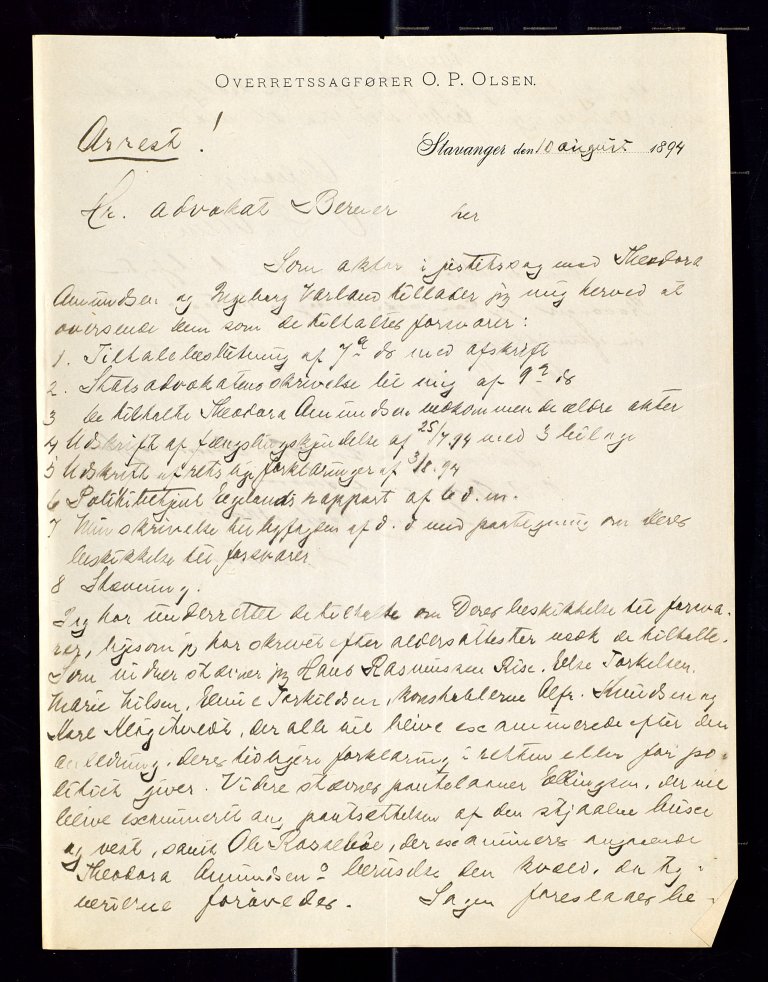 OVERRETSSAGFØRER O. P. OLSEN.
Arrest!
Stavanger den 10 august 1894
Hr. advokat Berner her
Som aktor i justitssag mod Theodora
Amundsen og Ingeborg Varland tillader jeg mig herved at
oversende dem som de tiltaltes forsvarer:
1. Tiltalebeslutning af 7de ds med afskrift
2. Statsadvokatens skrivelse til mig af 9de ds
3 de tiltalte Theodora Amundsen vedkommende ældre akter
4 Udskrift af fængslingskjendelse af 25/7.94 med 3 bilage
5 Udskrift af retslige forklaringer af 3/8.94
6 Politibetjent Egelands rapport af 6 d.m.
7 Min skrivelse til byfogden af d.d med paategning om Deres
beskikkelse til forsvarer
8 Stævning.
Jeg har underrettet de tiltalte om Deres beskikkelse til forsva-
rer, ligesom jeg har skrevet efter aldersattester vedk de tiltalte.
Som vidner stævner jeg Hans Rasmussen Rise, Else Torkelsen,
Marie Nilsen, Torkildsen, konstablerne Alfr. Knudsen og
Kare, der alle vil blive examinerede efter den
anledning, deres tidligere forklaring i retten eller for po-
litiet giver. Videre stævnes pantelaaner Ellingsen, der vil
blive examineret ang pantsættelsen af den stjaalne buxe
og vest, samt Ole, der examineres angaaende
Theodora Amundsens beruselse den kveld, da ty-
verierne forøvedes. Sagen foreslaaes be-